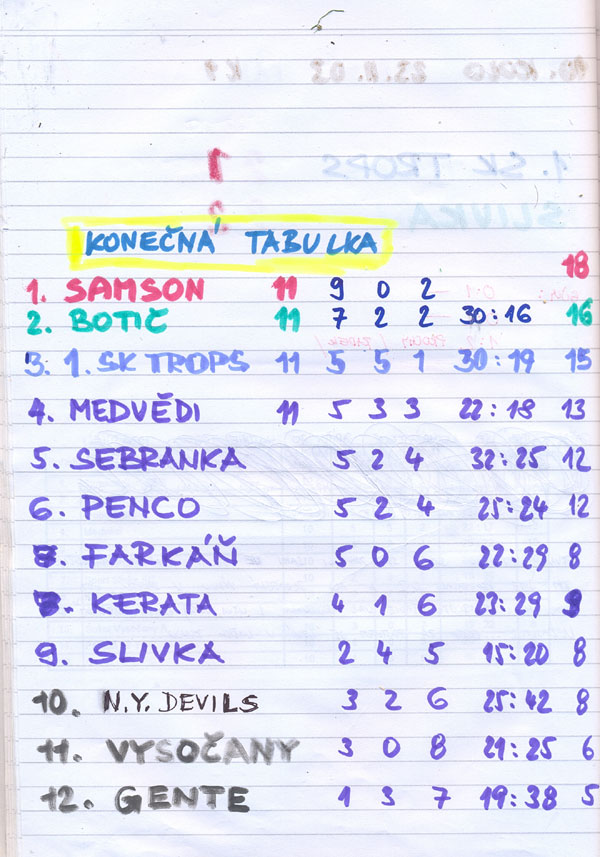 KONEČNÁ TABULKA
1. SAMSON 11 9 0 2 18
2. BOTIČ 11 7 2 2 30:16 16
3. 1. SK TROPS 11 5 5 1 30:19 15
4. MEDVĚDI 11 5 3 3 22:18 13
5. SEBRANKA 5 2 4 32:25 12
6. PENCO 5 2 4 25:24 12
FARKÁŇ 5 0 6 22:29 8
KERATA 4 1 6 23:29 9
9. SLIVKA 2 4 5 15:20 8
10. N.Y. DEVILS 3 2 6 25:42 8
11. VYSOČANY 3 0 8 21:25 6
12. GENTE 1 3 7 19:38 5